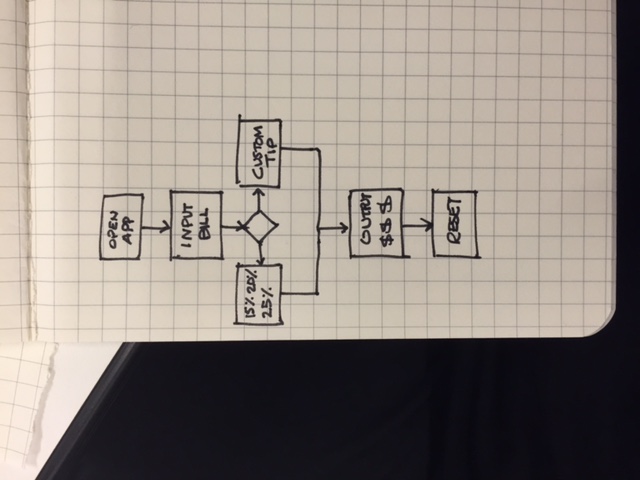 OPEN
APP
INPUT
BILL
15% 20%
25%
CUSTOM
TIP
OUTPUT
$$$
RESET